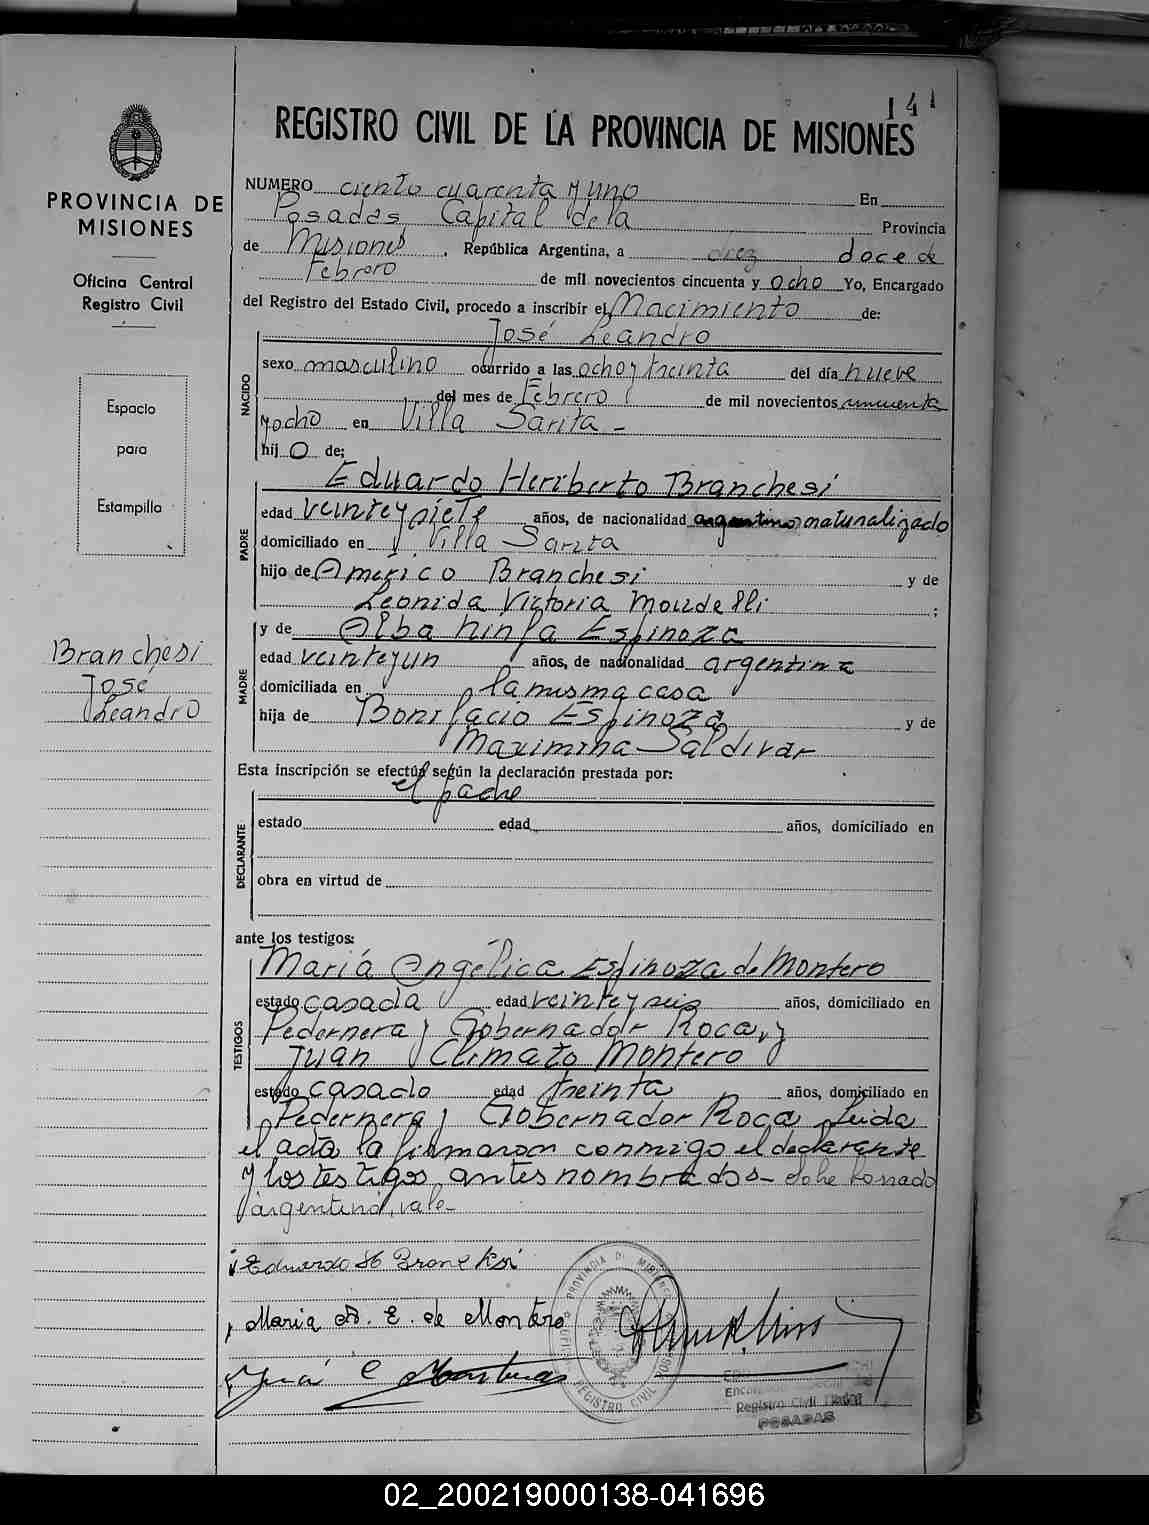 141
REGISTRO CIVIL DE LA PROVINCIA DE MISIONES
PROVINCIA DE
MISIONES
Oficina Central
Registro Civil
Espacio
para
Estampilla
Branchesi
José
Leandro
NUMERO ciento cuarenta y uno En
Posadas Capital de la Provincia
de Misiones, República Argentina, a diez doce de
Febrero de mil novecientos cincuenta y ocho Yo, Encargado
del Registro del Estado Civil, procedo a inscribir el Nacimiento de:
José Leandro
NACIDO
sexo masculino ocurrido a las ocho y treinta del día nueve
del mes de Febrero de mil novecientos cincuenta
y ocho en Villa Sarita -
hijo de:
PADRE
Eduardo Heriberto Branchesi
edad veinte y siete años, de nacionalidad argentino naturalizado
domiciliado en Villa Sarita
hijo de Américo Branchesi y de
Leonida Victoria ;
MADRE
y de Alba Ninfa Espinoza
edad veinte y un años, de nacionalidad argentina
domiciliada en la misma casa
hija de Bonifacio Espinoza y de
Maximina Saldivar
Esta inscripción se efectúa según la declaración prestada por:
el padre
DECLARANTE
estado edad años, domiciliado en
obra en virtud de
ante los testigos:
TESTIGOS
María Angélica Espinoza de Montero
estado casada edad veinte y seis años, domiciliado en
Pedernera y Gobernador Roca, y
Juan Climato Montero
estado casado edad treinta años, domiciliado en
Pedernera y Gobernador Roca Leida
el acta la firmaron conmigo el declarante
y los testigos antes nombrados - sobre borrado
argentino, vale -
Eduardo H Branchesi
Maria A. E. de Montero
PROVINCIA DE MISIONES
REGISTRO CIVIL
Registro Civil
POSADAS
02_200219000138-041696